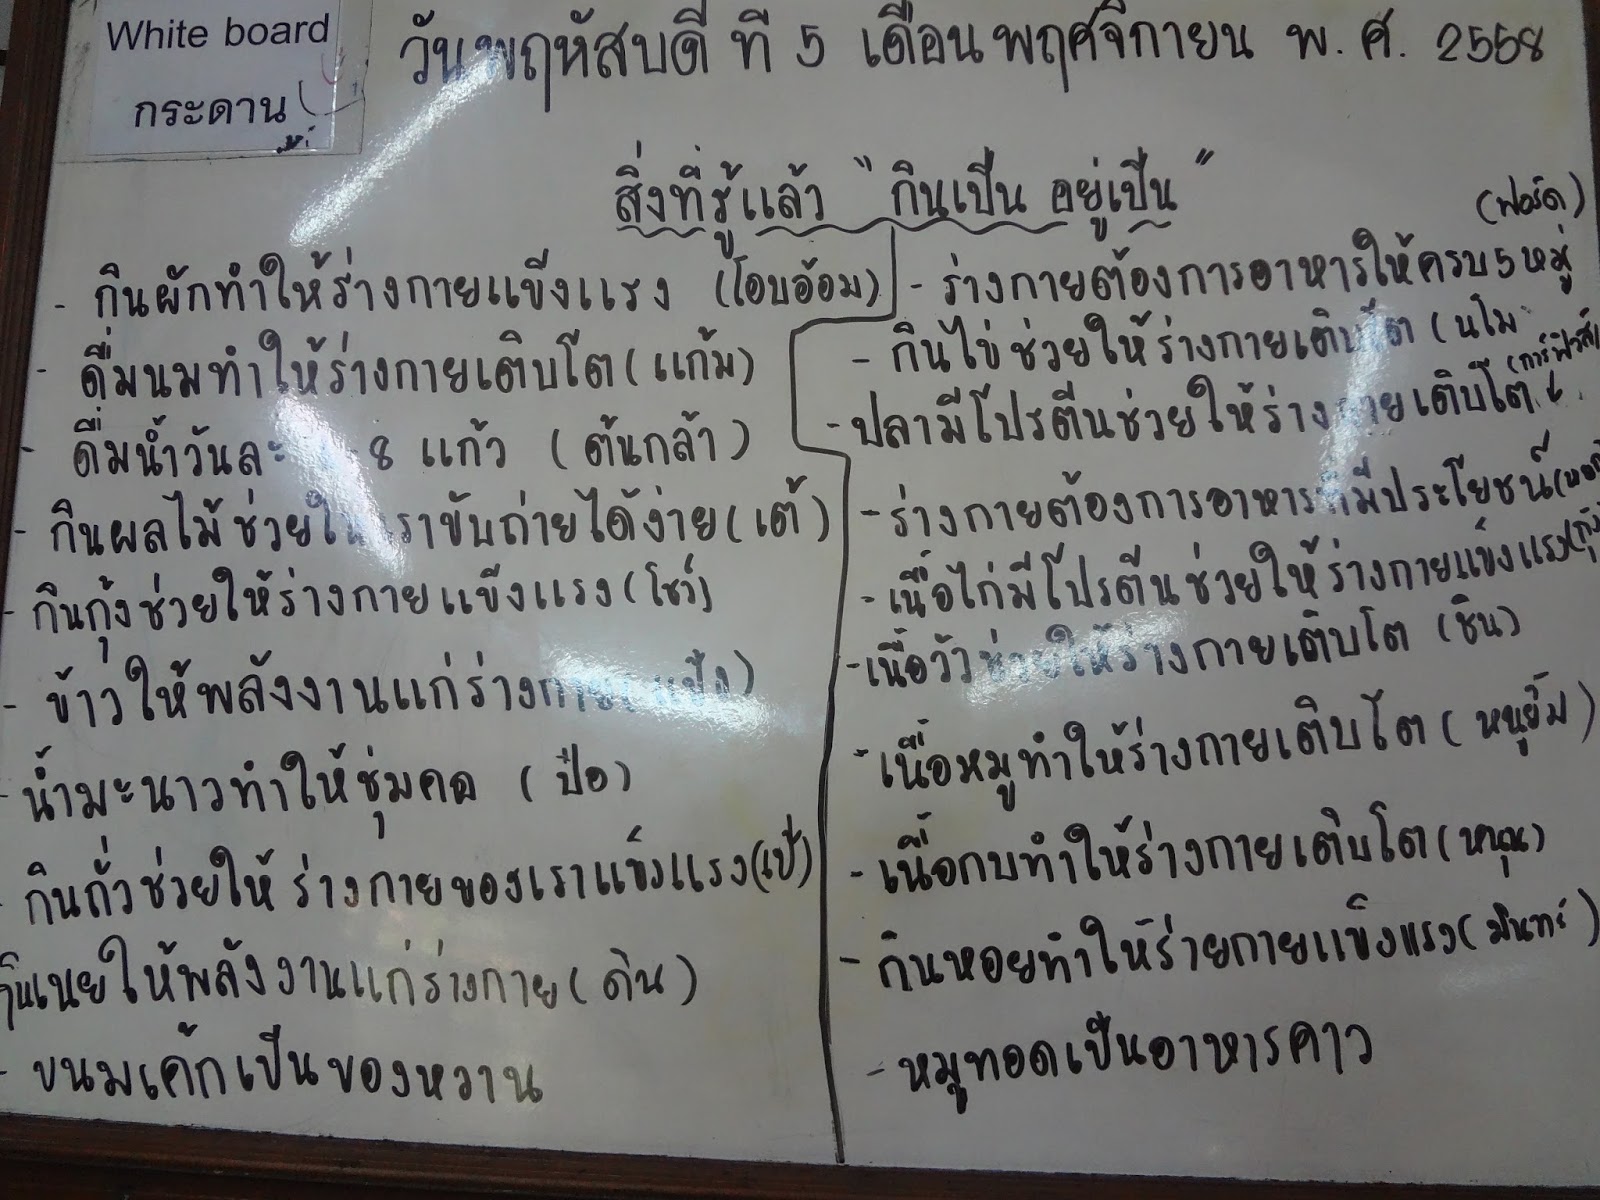 White board
กระดาน
วันพฤหัสบดี ที่ 5 เดือน พฤศจิกายน พ.ศ. 2558
สิ่งที่รู้แล้ว "กินเป็น อยู่เป็น"
- กินผักทำให้ร่างกายแข็งแรง (โอบอ้อม)
- ดื่มนมทำให้ร่างกายเติบโต (แก้ม)
- ดื่มน้ำวันละ 8 แก้ว (ต้นกล้า)
- กินผลไม้ช่วยให้เราขับถ่ายได้ง่าย (เต้)
- กินกุ้งช่วยให้ร่างกายแข็งแรง (โชว์)
- ข้าวให้พลังงานแก่ร่างกาย
- น้ำมะนาวทำให้ชุ่มคอ (ปือ)
- กินถั่วช่วยให้ร่างกายของเราแข็งแรง (เป้)
กินเนยให้พลังงานแก่ร่างกาย (ดิน)
- ขนมเค้กเป็นของหวาน
(ฟอร์ด)
- ร่างกายต้องการอาหารให้ครบ 5 หมู่
- กินไข่ช่วยให้ร่างกายเติบโต (นโม
- ปลามีโปรตีนช่วยให้ร่างกายเติบโต
- ร่างกายต้องการอาหารที่มีประโยชน์
- เนื้อไก่มีโปรตีนช่วยให้ร่างกายแข็งแรง (กุ้ง
- เนื้อวัวช่วยให้ร่างกายเติบโต (ชิน)
- เนื้อหมูทำให้ร่างกายเติบโต (หนูยิ้ม)
- เนื้อกบทำให้ร่างกายเติบโต (หคุณ)
- กินหอยทำให้ร่ายกายแข็งแรง (มินทร์)
- หมูทอดเป็นอาหารคาว